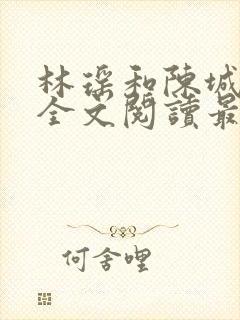 林瑶和陳城
全文閱讀最
何舍哩